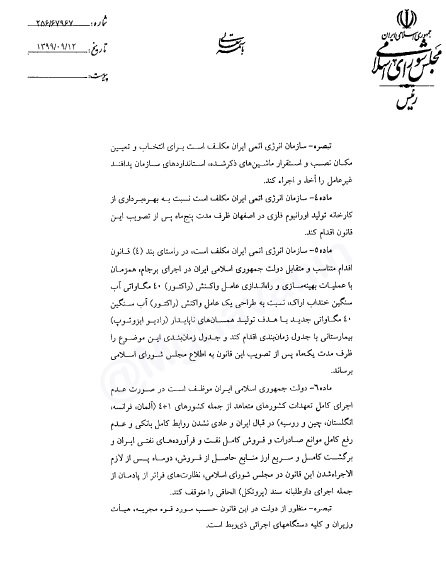 جمهوری اسلامی ایران
مجلس شورای اسلامی
رئیس
باسمه تعالی
شماره: ۲۵۶/۶۷۹۶۷
تاریخ: ۱۳۹۹/۰۹/۱۲
پیوست:
تبصره- سازمان انرژی اتمی ایران مکلف است برای انتخاب و تعیین
مکان نصب و استقرار ماشین‌های ذکرشده، استانداردهای سازمان پدافند
غیرعامل را أخذ و اجراء کند.
ماده۴- سازمان انرژی اتمی ایران مکلف است نسبت به بهره‌برداری از
کارخانه تولید اورانیوم فلزی در اصفهان ظرف مدت پنج‌ماه پس از تصویب این
قانون اقدام کند.
ماده۵- سازمان انرژی اتمی ایران مکلف است، در راستای بند (۴) قانون
اقدام متناسب و متقابل دولت جمهوری اسلامی ایران در اجرای برجام، همزمان
با عملیات بهینه‌سازی و راه‌اندازی عامل واکنش (راکتور) ۴۰ مگاواتی آب
سنگین خنداب اراک، نسبت به طراحی یک عامل واکنش (راکتور) آب سنگین
۴۰ مگاواتی جدید با هدف تولید همسان‌های ناپایدار (رادیو ایزوتوپ)
بیمارستانی با جدول زمان‌بندی اقدام کند و جدول زمان‌بندی این موضوع را
ظرف مدت یک‌ماه پس از تصویب این قانون به اطلاع مجلس شورای اسلامی
برساند.
ماده۶- دولت جمهوری اسلامی ایران موظف است در صورت عدم
اجرای کامل تعهدات کشورهای متعاهد از جمله کشورهای ۱+۴ (آلمان، فرانسه،
انگلستان، چین و روسیه) در قبال ایران و عادی نشدن روابط کامل بانکی و عدم
رفع کامل موانع صادرات و فروش کامل نفت و فرآورده‌های نفتی ایران و
برگشت کامل و سریع ارز منابع حاصل از فروش، دوماه پس از لازم
الاجراءشدن این قانون در مجلس شورای اسلامی، نظارت‌های فراتر از پادمان از
جمله اجرای داوطلبانه سند (پروتکل) الحاقی را متوقف کند.
تبصره- منظور از دولت در این قانون حسب مورد قوه مجریه، هیأت
وزیران و کلیه دستگاههای اجرائی ذی‌ربط است.